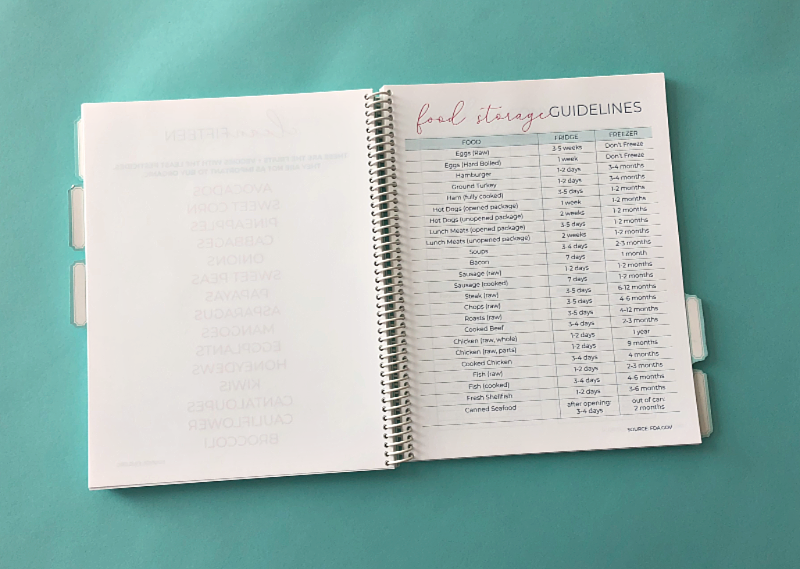 FIFTEEN
AVOCADOS
SWEETCORN
PINEAPPLES
CABBAGES
ONIONS
SWEET PEAS
PAPAYAS
ASPARAGUS
MANGOES
EGGPLANTS
HONEYDEWS
KIWIS
CANTALOUPES
CAULIFLOWER
BROCCOLI
food storage GUIDELINES
FOOD FRIDGE FREEZER
Eggs (Raw) 3-5 weeks Don't Freeze
Eggs (Hard Boiled) 1 week Don't Freeze
Hamburger 1-2 days 3-4 months
Ground Turkey 1-2 days 3-4 months
Ham (fully cooked) 3-5 days 1-2 months
Hot Dogs (opened package) 1 week 1-2 months
Hot Dogs (unopened package) 2 weeks 1-2 months
Lunch Meats (opened package) 3-5 days 1-2 months
Lunch Meats (unopened package) 2 weeks 1-2 months
Soups 3-4 days 2-3 months
Bacon 7 days 1 month
Sausage (raw) 1-2 days 1-2 months
Sausage (cooked) 7 days 1-2 months
Steak (raw) 3-5 days 6-12 months
Chops (raw) 3-5 days 4-6 months
Roasts (raw) 3-5 days 4-12 months
Cooked Beef 3-4 days 2-3 months
Chicken (raw, whole) 1-2 days 1 year
Chicken (raw, parts) 1-2 days 9 months
Cooked Chicken 3-4 days 4 months
Fish (raw) 1-2 days 2-3 months
Fish (cooked) 3-4 days 4-6 months
Fresh Shellfish 1-2 days 3-6 months
Canned Seafood after opening: out of can:
3-4 days 2 months
SOURCE: FDA.GOV